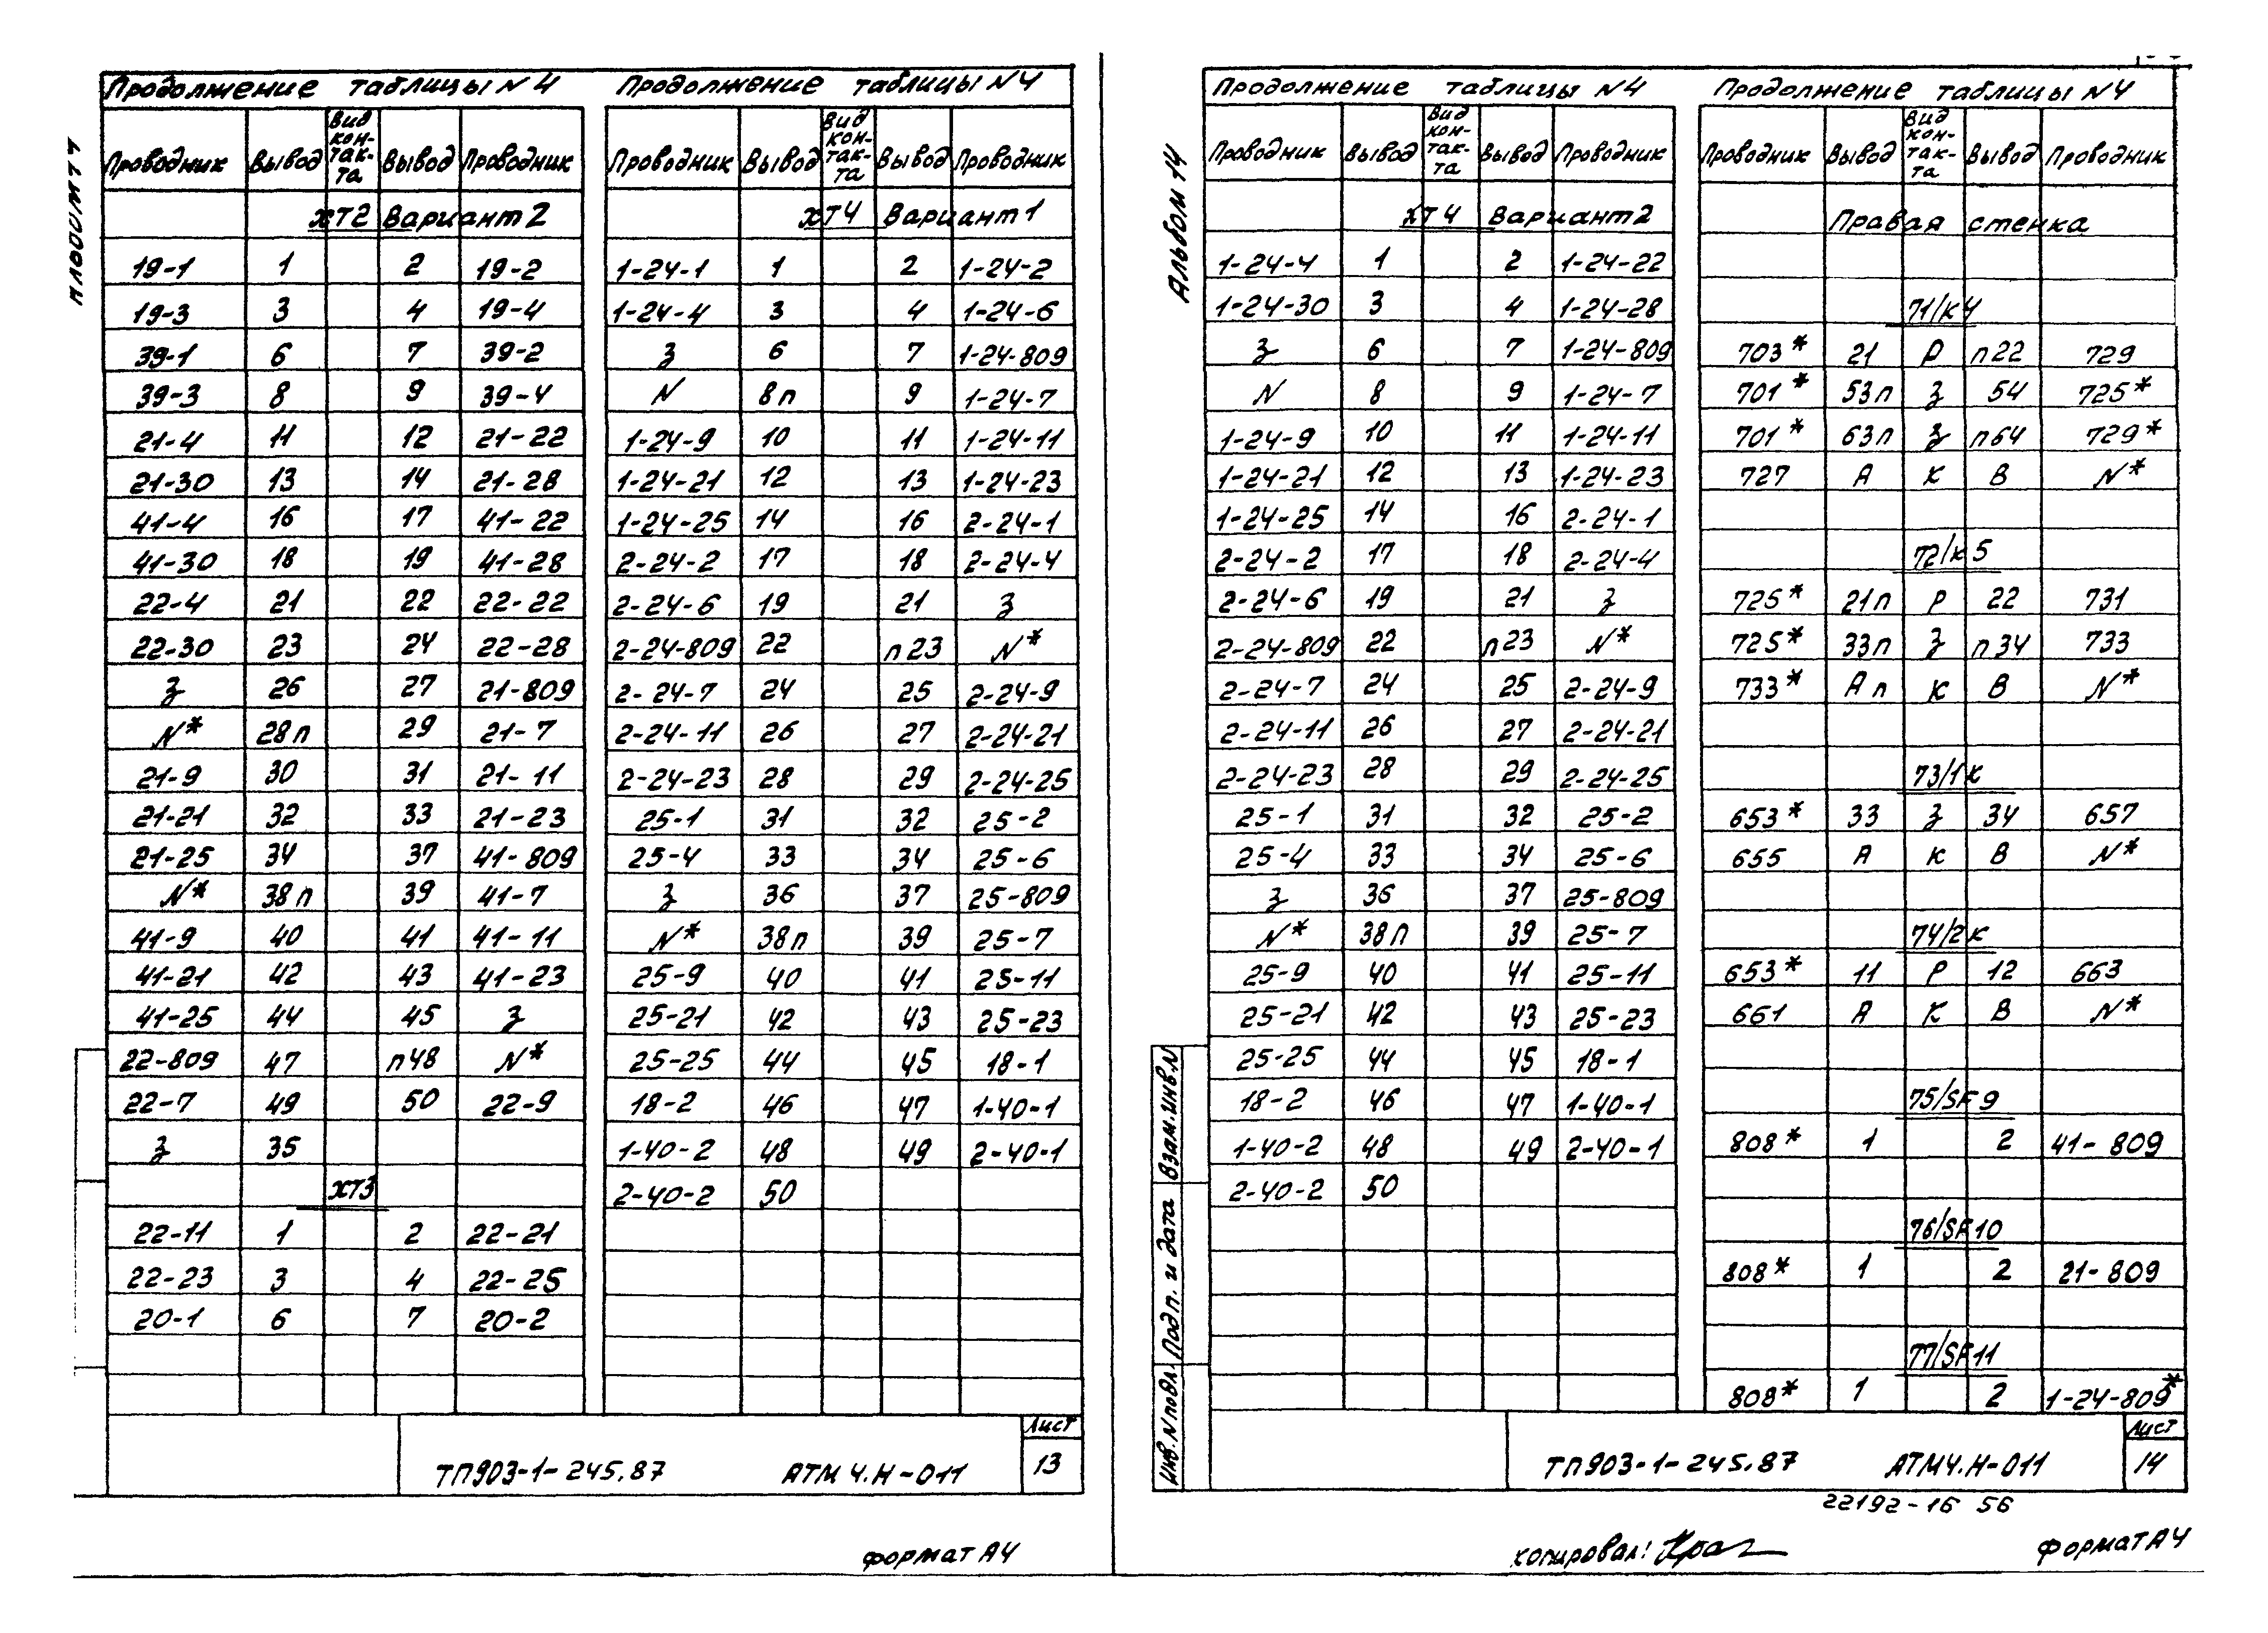 Альбом 14
Продолжение таблицы N4
Проводник Вывод Вид контакта Вывод Проводник
ХТ2 Вариант 2
19-1 1 2 19-2
19-3 3 4 19-4
39-1 6 7 39-2
39-3 8 9 39-4
21-4 11 12 21-22
21-30 13 14 21-28
41-4 16 17 41-22
41-30 18 19 41-28
22-4 21 22 22-22
22-30 23 24 22-28
З 26 27 21-809
N* 28п 29 21-7
21-9 30 31 21-11
21-21 32 33 21-23
21-25 34 37 41-809
N* 38п 39 41-7
41-9 40 41 41-11
41-21 42 43 41-23
41-25 44 45 З
22-809 47 п48 N*
22-7 49 50 22-9
З 35
ХТ3
22-11 1 2 22-21
22-23 3 4 22-25
20-1 6 7 20-2
Продолжение таблицы N4
Проводник Вывод Вид кон-так-та Вывод Проводник
ХТ4 Вариант 1
1-24-1 1 2 1-24-2
1-24-4 3 4 1-24-6
З 6 7 1-24-809
N 8п 9 1-24-7
1-24-9 10 11 1-24-11
1-24-21 12 13 1-24-23
1-24-25 14 16 2-24-1
2-24-2 17 18 2-24-4
2-24-6 19 21 З
2-24-809 22 п23 N*
2-24-7 24 25 2-24-9
2-24-11 26 27 2-24-21
2-24-23 28 29 2-24-25
25-1 31 32 25-2
25-4 33 34 25-6
З 36 37 25-809
N* 38п 39 25-7
25-9 40 41 25-11
25-21 42 43 25-23
25-25 44 45 18-1
18-2 46 47 1-40-1
1-40-2 48 49 2-40-1
2-40-2 50
ТП903-1-245.87 АТМ4.Н-011
Лист
13
Формат А4
Альбом 14
Продолжение таблицы N4
Проводник Вывод Вид кон-так-та Вывод Проводник
ХТ4 Вариант 2
1-24-4 1 2 1-24-22
1-24-30 3 4 1-24-28
З 6 7 1-24-809
N 8 9 1-24-7
1-24-9 10 11 1-24-11
1-24-21 12 13 1-24-23
1-24-25 14 16 2-24-1
2-24-2 17 18 2-24-4
2-24-6 19 21 З
2-24-809 22 п23 N*
2-24-7 24 25 2-24-9
2-24-11 26 27 2-24-21
2-24-23 28 29 2-24-25
25-1 31 32 25-2
25-4 33 34 25-6
З 36 37 25-809
N* 38п 39 25-7
25-9 40 41 25-11
25-21 42 43 25-23
25-25 44 45 18-1
18-2 46 47 1-40-1
1-40-2 48 49 2-40-1
2-40-2 50
Продолжение таблицы N4
Проводник Вывод Вид кон-так-та Вывод Проводник
Правая стенка
71/К4
703* 21 Р п22 729
701* 53п З 54 725*
701* 63п З п64 729*
727 А К В N*
72/К5
725* 21п Р 22 731
725* 33п З п34 733
733* Ап К В N*
73/1К
653* 33 З 34 657
655 А К В N*
74/2К
653* 11 Р 12 663
661 А К В N*
75/SF9
808* 1 2 41-809
76/SF10
808* 1 2 21-809
77/SF11
808* 1 2 1-24-809*
Инв. N подл. Подп. и дата Взам. инв. N
ТП903-1-245.87 АТМ4.Н-011
Лист
14
22192-16 56
Копировал:
Формат А4